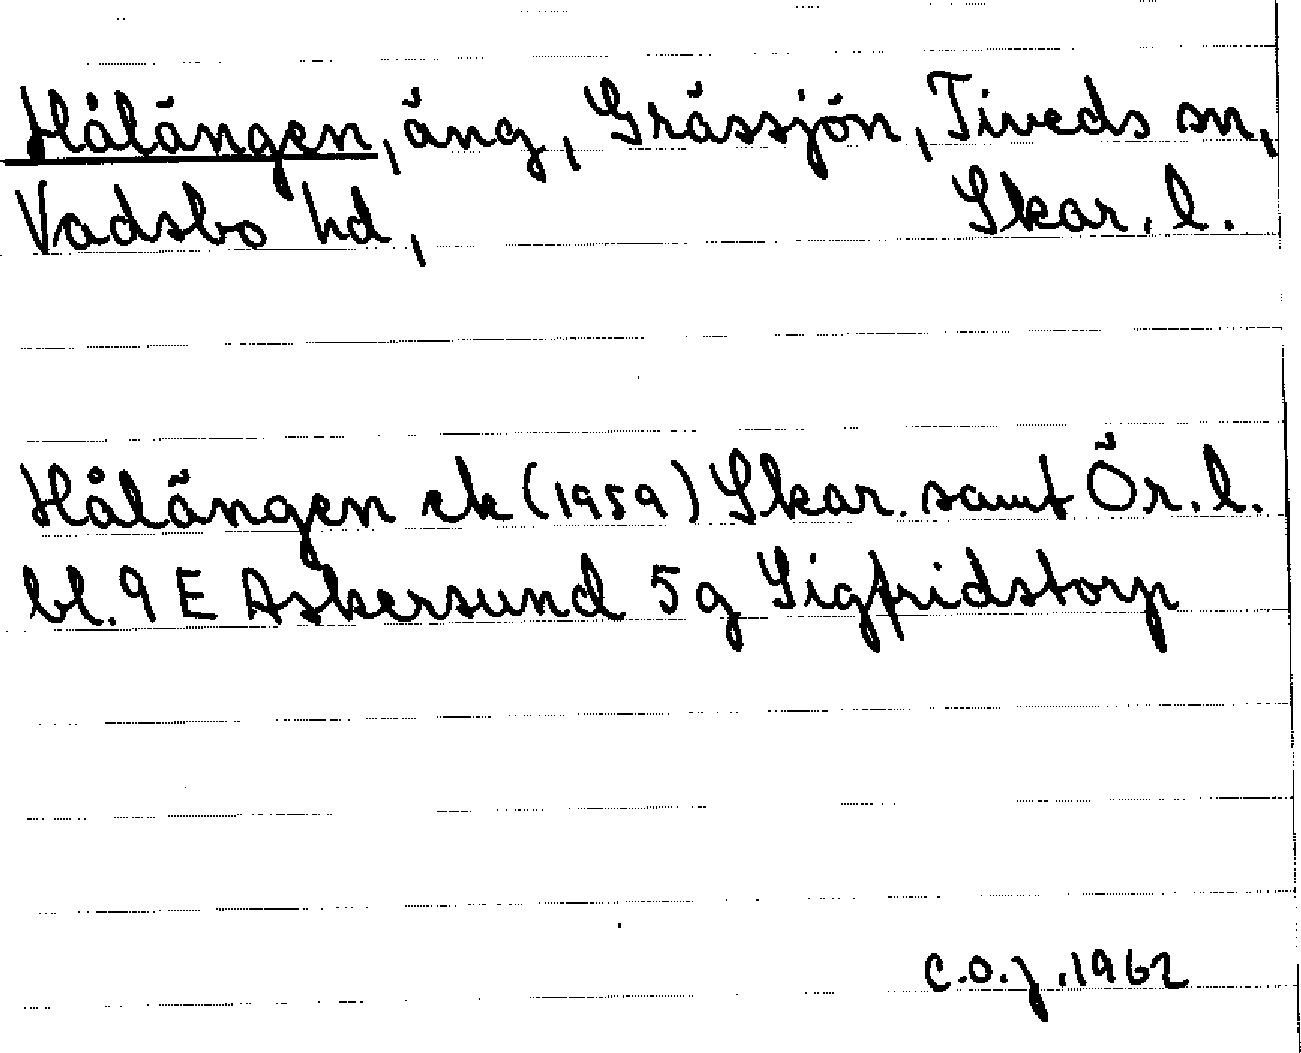 Hålängen, äng, Grässjön, Tiveds sn,
Vadsbo hd, Skar. l.
Hålängen ek (1959) Skar. samt Ör. l.
bl. 9 E Askersund 5 g Sigfridstorp
C.O.J. 1962